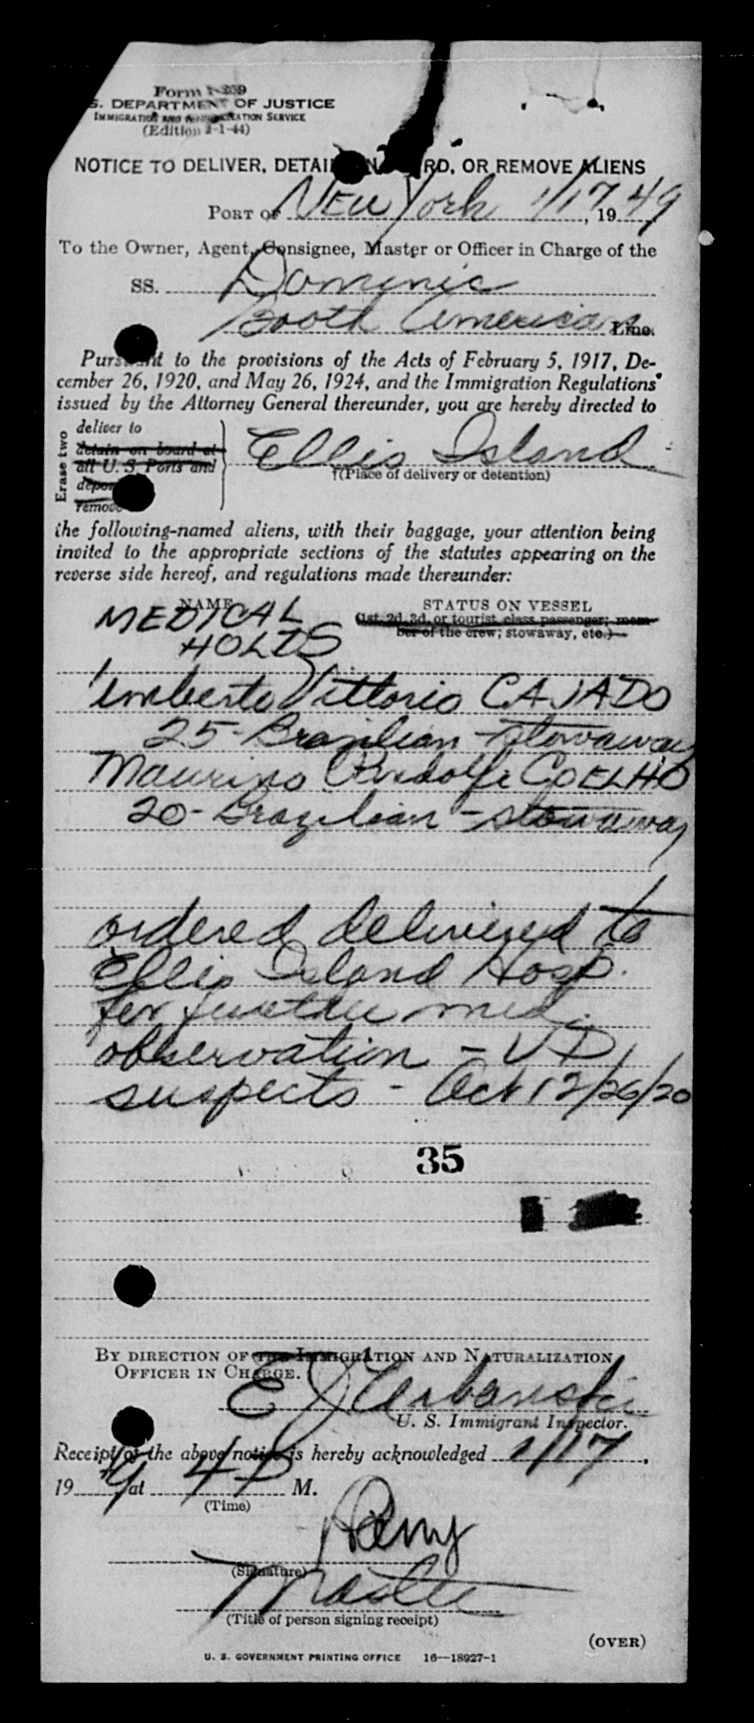 Form I-259
S. DEPARTMENT OF JUSTICE
IMMIGRATION AND NATURALIZATION SERVICE
(Edition 2-1-44)
NOTICE TO DELIVER, DETAIN ON BOARD, OR REMOVE ALIENS
PORT OF New York 1/17, 1949
To the Owner, Agent, Consignee, Master or Officer in Charge of the
SS. Dominic
Booth American Line.
Pursuant to the provisions of the Acts of February 5, 1917, De-
cember 26, 1920, and May 26, 1924, and the Immigration Regulations
issued by the Attorney General thereunder, you are hereby directed to
Erase two
deliver to
detain on board at
all U. S. Ports and
remove
Ellis Island
†(Place of delivery or detention)
the following-named aliens, with their baggage, your attention being
invited to the appropriate sections of the statutes appearing on the
reverse side hereof, and regulations made thereunder:
NAME STATUS ON VESSEL
(1st, 2d, 3d, or tourist class passenger; mem-
ber of the crew; stowaway, etc.)
MEDICAL
HOLDS
Umberto Vittorio CAJADO
25- Brazilian - stowaway
Maurino COELHO
20- Brazilian - stowaway
ordered delivered to
Ellis Island Hosp.
for further med.
observation - VD
suspects - Act 12/26/20
35
BY DIRECTION OF THE IMMIGRATION AND NATURALIZATION
OFFICER IN CHARGE.
E J Urbanski
U. S. Immigrant Inspector.
Receipt of the above notice is hereby acknowledged 1/17,
1949 at 4 P M.
(Time)
(Signature)
Master
(Title of person signing receipt)
(OVER)
U. S. GOVERNMENT PRINTING OFFICE 16—18927-1